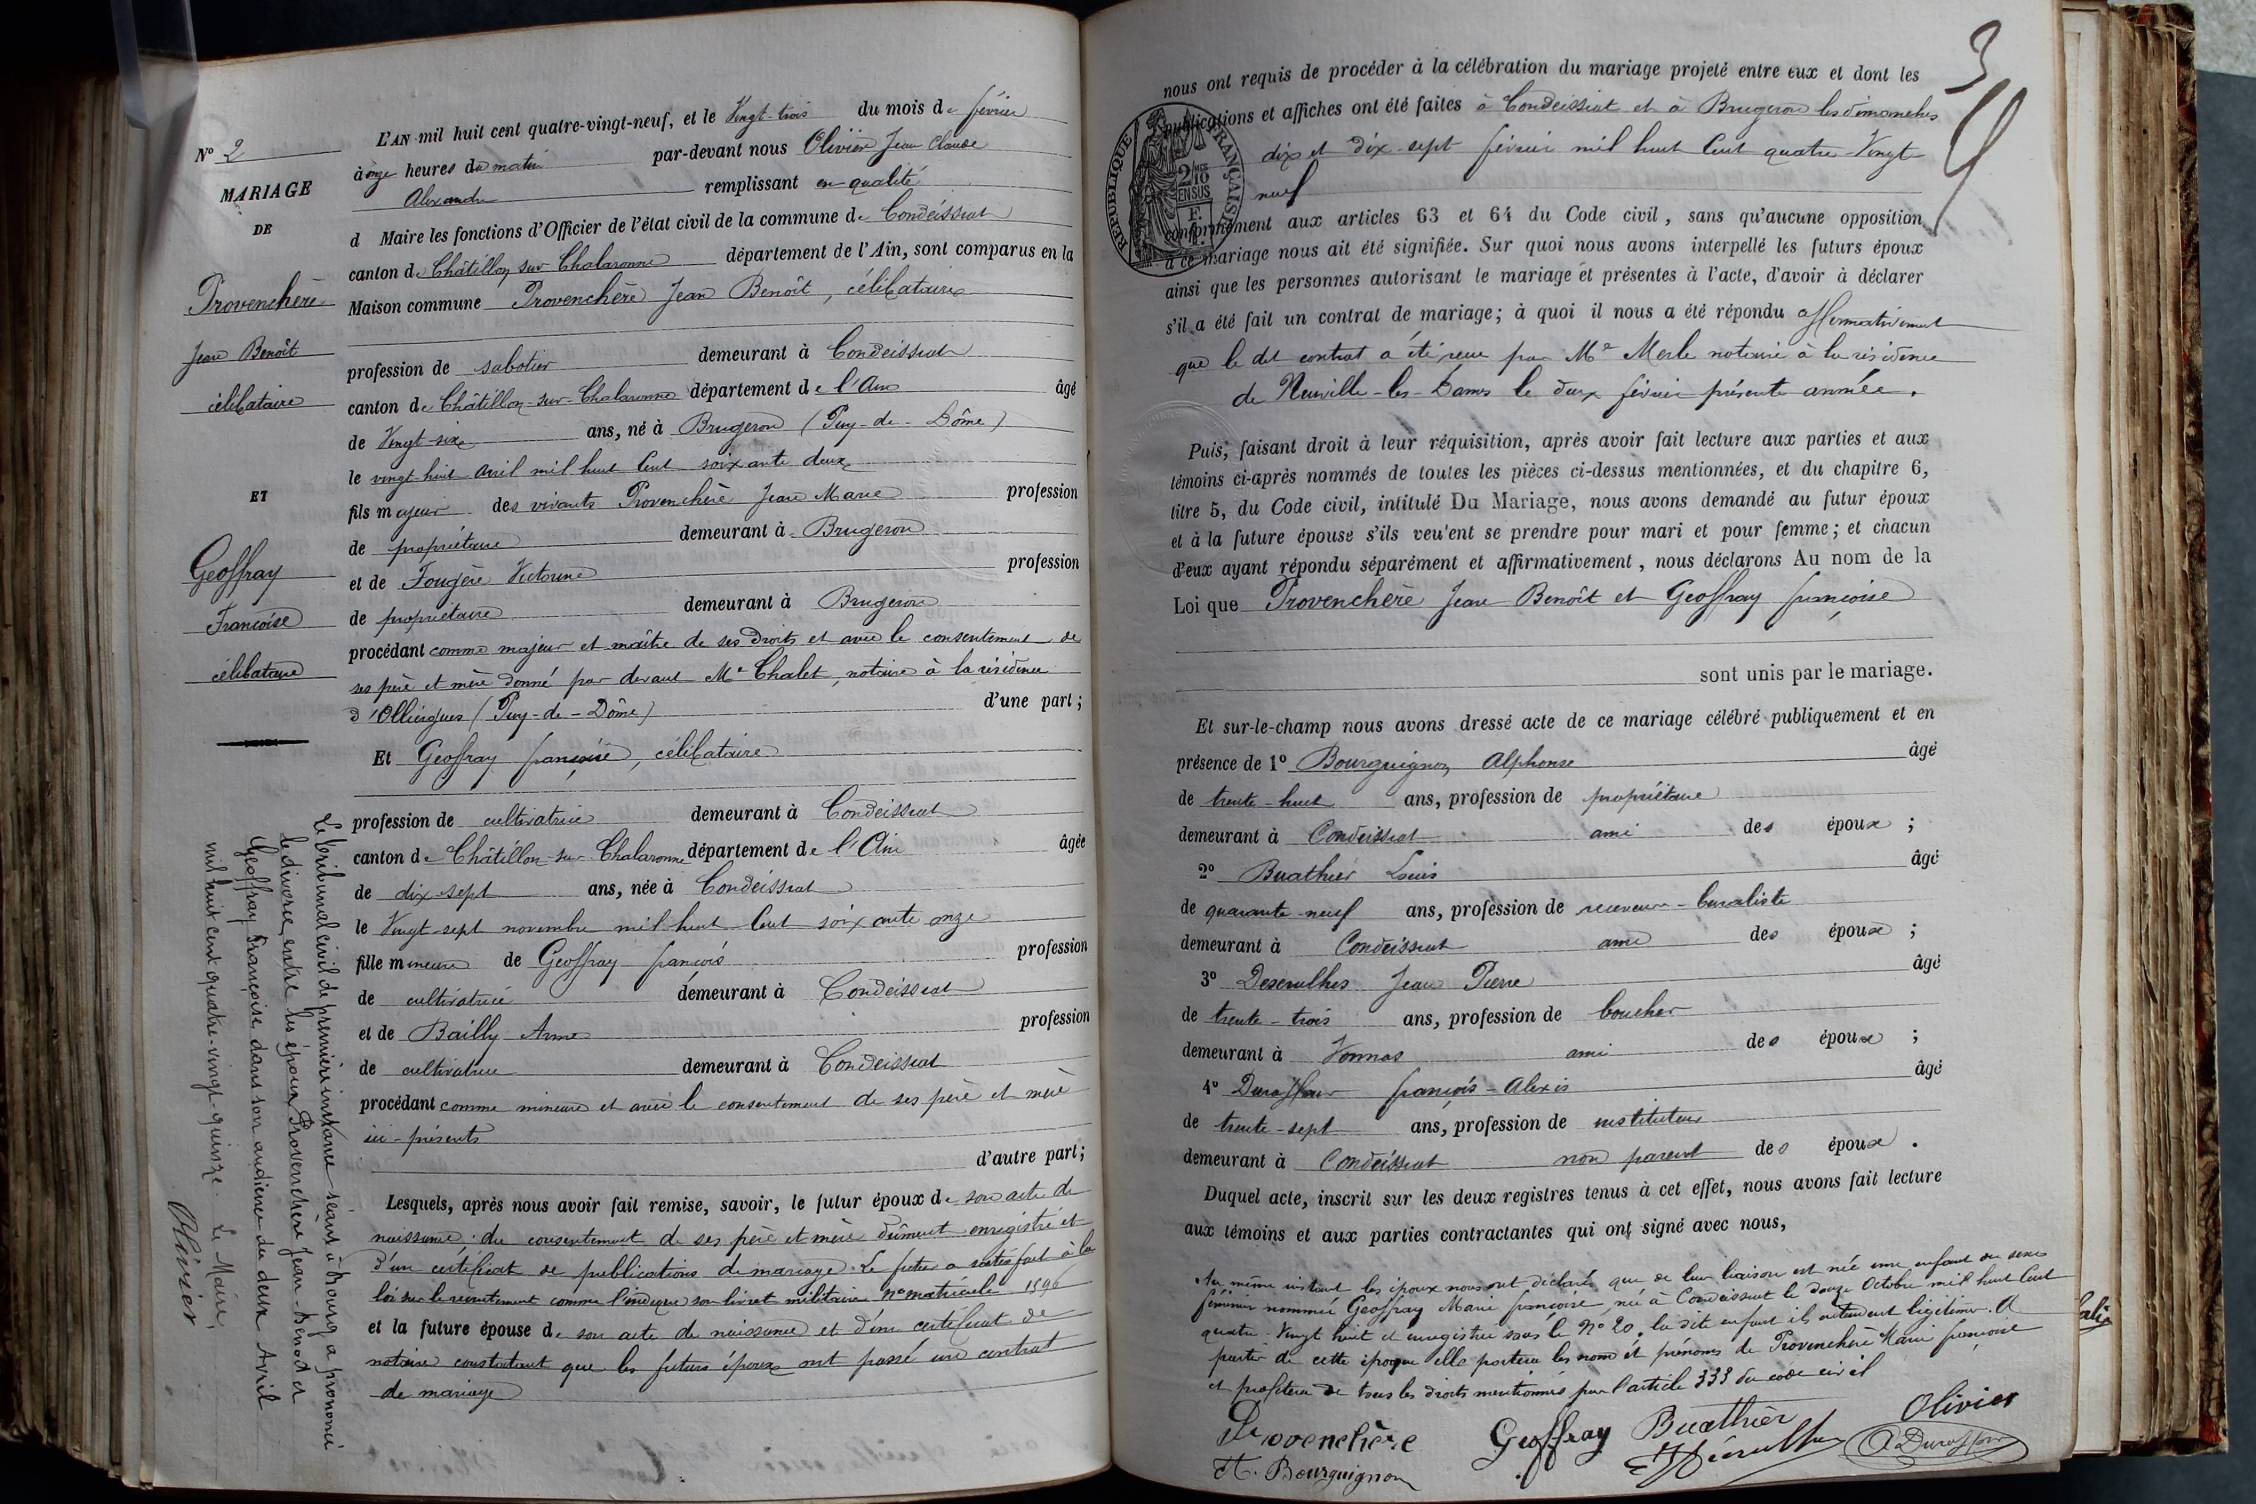 N° 2
MARIAGE
DE
Provenchère
Jean Benoît
célibataire
ET
Geoffray
Françoise
célibataire
Le tribunal civil de première instance séant à Bourg a prononcé
le divorce entre les époux Provenchère Jean-Benoit et
Geoffray Françoise dans son audience du deux Avril
mil huit cent quatre-vingt-quinze. Le Maire,
Olivier
L'AN mil huit cent quatre-vingt-neuf, et le Vingt-trois du mois de février
à onze heures du matin par-devant nous Olivier Jean Claude
Alexandre remplissant en qualité
d Maire les fonctions d'Officier de l'état civil de la commune de Condeissiat
canton de Châtillon sur Chalaronne département de l'Ain, sont comparus en la
Maison commune Provenchère Jean Benoît, célibataire
profession de sabotier demeurant à Condeissiat
canton de Châtillon-sur-Chalaronne département de l'Ain âgé
de Vingt-six ans, né à Brugeron (Puy-de-Dôme)
le vingt-huit avril mil huit Cent soixante deux
fils majeur des vivants Provenchère Jean Marie profession
de propriétaire demeurant à Brugeron
et de Fougère Victorine profession
de propriétaire demeurant à Brugeron
procédant comme majeur et maître de ses droits et avec le consentement de
ses père et mère donné par devant Me Chalet, notaire à la résidence
d'Olliergues (Puy-de-Dôme) d'une part;
Et Geoffray françoise, célibataire
profession de cultivatrice demeurant à Condeissiat
canton de Châtillon-sur-Chalaronne département de l'Ain âgée
de dix-sept ans, née à Condeissiat
le Vingt-sept novembre mil huit Cent soixante onze
fille mineure de Geoffray françois profession
de cultivatrice demeurant à Condeissiat
et de Bailly Anne profession
de cultivatrice demeurant à Condeissiat
procédant comme mineure et avec le consentement de ses père et mère
ici-présents
d'autre part;
Lesquels, après nous avoir fait remise, savoir, le futur époux de son acte de
naissance du consentement de ses père et mère dûment enregistré et
d'un certificat de publications de mariage. Le futur a satisfait à la
loi sur le recrutement comme l'indique son livret militaire n° matricule 1596
et la future épouse de son acte de naissance et d'un certificat de
notaire constatant que les futurs époux ont passé un contrat
de mariage
3
nous ont requis de procéder à la célébration du mariage projeté entre eux et dont les
publications et affiches ont été faites à Condeissiat et à Brugeron les dimanches
dix et dix-sept février mil huit Cent quatre-Vingt
neuf
RÉPUBLIQUE FRANÇAISE
2/10
EN SUS
conformément aux articles 63 et 64 du Code civil, sans qu'aucune opposition
à ce mariage nous ait été signifiée. Sur quoi nous avons interpellé les futurs époux
ainsi que les personnes autorisant le mariage et présentes à l'acte, d'avoir à déclarer
s'il a été fait un contrat de mariage; à quoi il nous a été répondu affirmativement
que le dit contrat a été reçu par Me Merle notaire à la résidence
de Neuville-les-Dames le deux février présente année.
Puis, faisant droit à leur réquisition, après avoir fait lecture aux parties et aux
témoins ci-après nommés de toutes les pièces ci-dessus mentionnées, et du chapitre 6,
titre 5, du Code civil, intitulé Du Mariage, nous avons demandé au futur époux
et à la future épouse s'ils veu'ent se prendre pour mari et pour femme; et chacun
d'eux ayant répondu séparément et affirmativement, nous déclarons Au nom de la
Loi que Provenchère Jean Benoît et Geoffray françoise
sont unis par le mariage.
Et sur-le-champ nous avons dressé acte de ce mariage célébré publiquement et en
présence de 1° Bourguignon Alphonse âgé
de trente-huit ans, profession de propriétaire
demeurant à Condeissiat ami des époux ;
2° Buathier Louis âgé
de quarante-neuf ans, profession de receveur-buraliste
demeurant à Condeissiat ami des époux ;
3° Jean Pierre âgé
de trente-trois ans, profession de boucher
demeurant à Vonnas ami des époux ;
4° Duraffour françois-Alexis âgé
de trente-sept ans, profession de instituteur
demeurant à Condeissiat non parent des époux .
Duquel acte, inscrit sur les deux registres tenus à cet effet, nous avons fait lecture
aux témoins et aux parties contractantes qui ont signé avec nous,
Au même instant les époux nous ont déclaré que de leur liaison est née une enfant du sexe
féminin nommée Geoffray Marie françoise, née à Condeissiat le douze Octobre mil huit Cent
quatre-Vingt huit et enregistrée sous le N° 20. la dit enfant ils entendent légitimer. A
partir de cette époque elle portera les nom et prénoms de Provenchère Marie françoise
et profitera de tous les droits mentionnés par l'article 333 du code civil
Provenchère Geoffray Buathier Olivier
A. Bourguignon A Duraffour